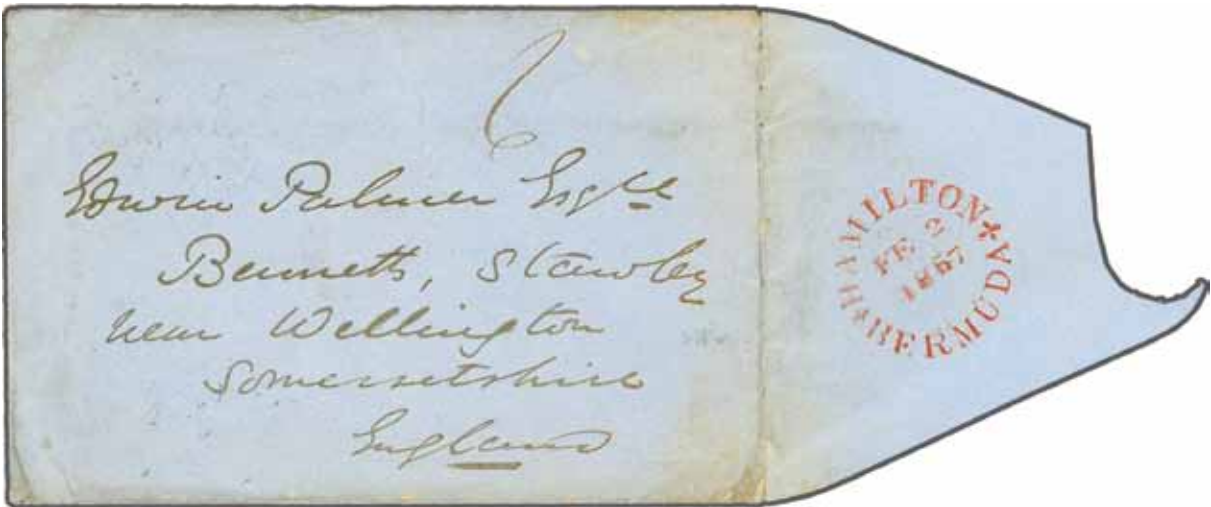 6
Edwin Palmer Esqre
Bennetts, Stawley
near Wellington
Somersetshire
England
HAMILTON BERMUDA
FE 2
1857